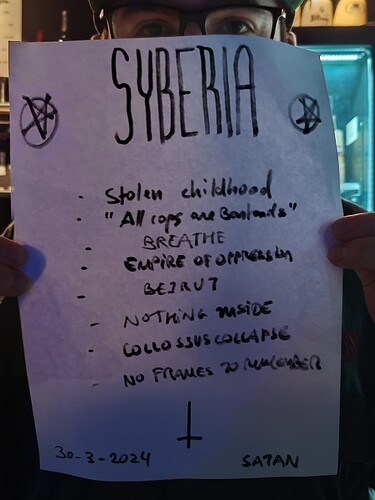 SYBERIA
- Stolen childhood
- "All cops are Bastards"
- BREATHE
- EMPIRE OF OPPRESSION
- BEIRUT
- NOTHING INSIDE
- COLLOSSUS COLLAPSE
- NO FRAMES TO REMEMBER
30-3-2024 SATAN